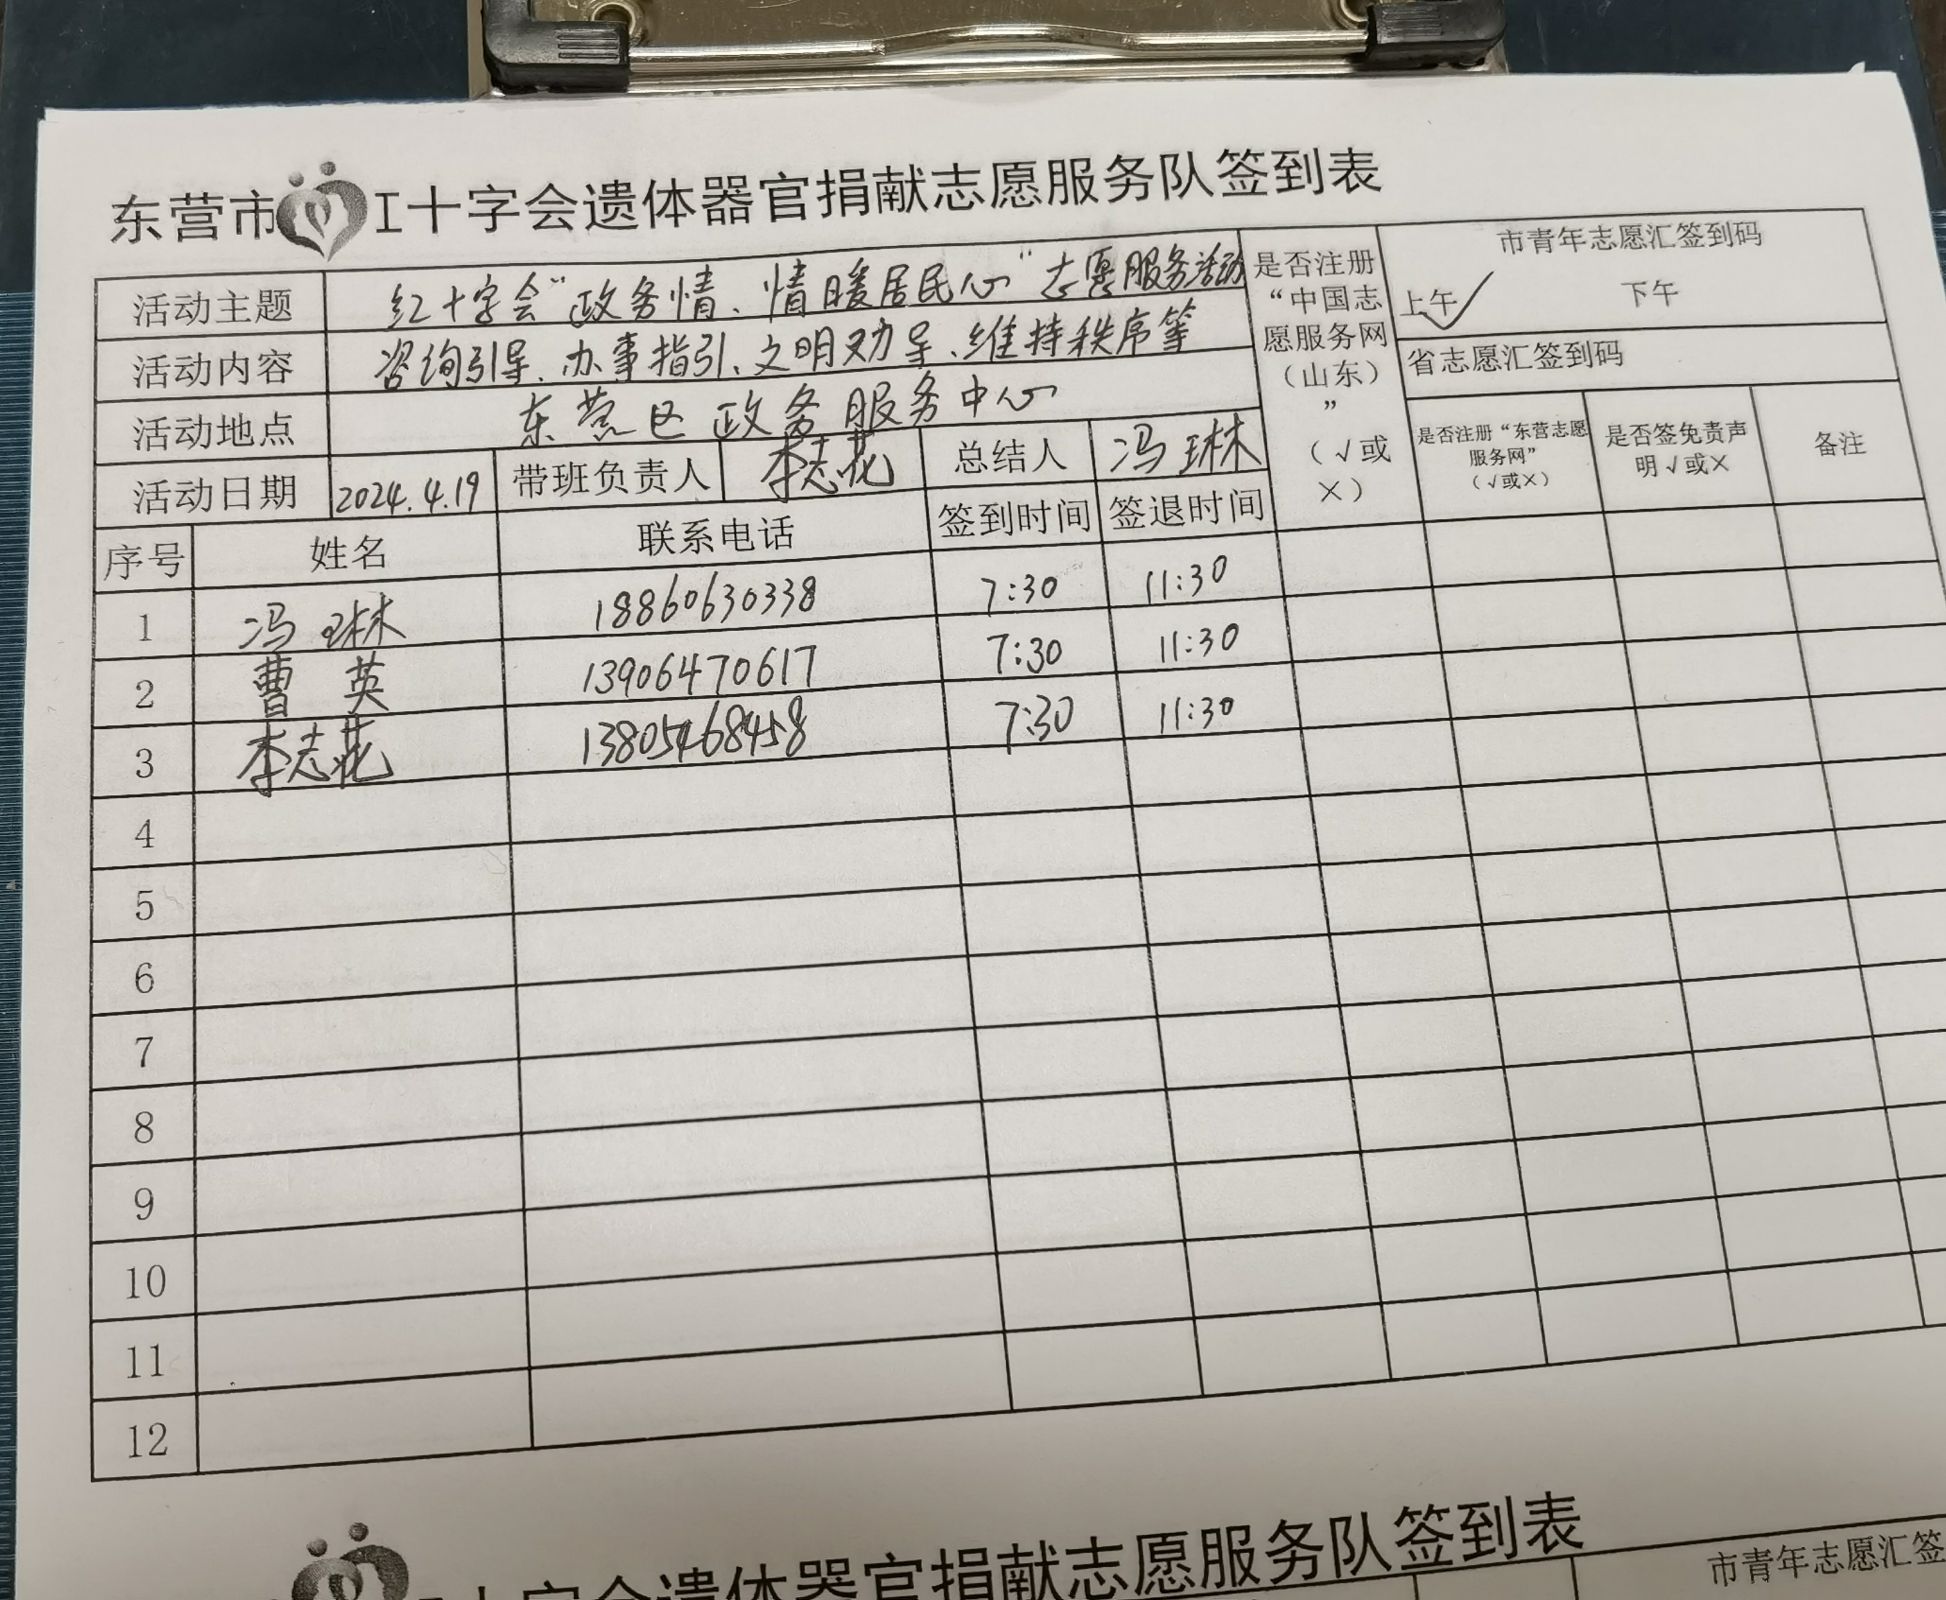 东营市红十字会遗体器官捐献志愿服务队签到表
活动主题 红十字会"政务情、情暖居民心"志愿服务活动
活动内容 咨询引导、办事指引、文明劝导、维持秩序等
活动地点 东营区政务服务中心
活动日期 2024.4.19 带班负责人 李志花 总结人 冯琳
是否注册“中国志愿服务网（山东）”（√或×）
市青年志愿汇签到码
上午✓ 下午
省志愿汇签到码
是否注册“东营志愿服务网”（√或×） 是否签免责声明√或× 备注
序号 姓名 联系电话 签到时间 签退时间
1 冯琳 18860630338 7:30 11:30
2 曹英 13906470617 7:30 11:30
3 李志花 13805468458 7:30 11:30
4
5
6
7
8
9
10
11
12
十字会遗体器官捐献志愿服务队签到表
市青年志愿汇签